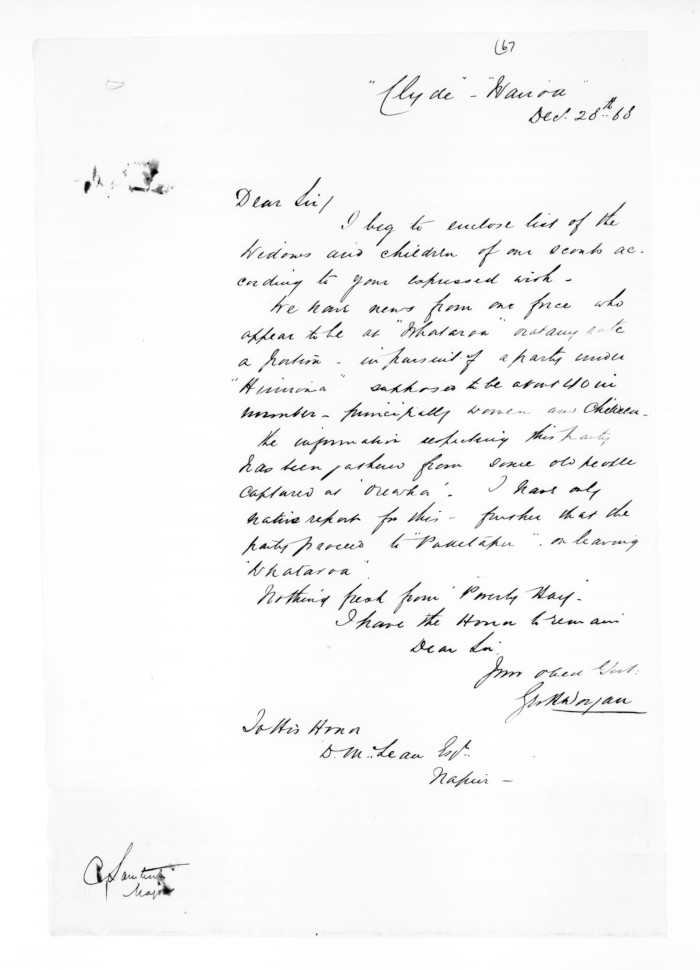 (67
"Clyde" - "Wairoa"
Dec. 28th 68
Dear Sir/
I beg to enclose list of the
Widows and children of our scouts ac-
cording to your expressed wish -
We have news from our force who
appear to be at "Whataroa" or at any rate
a portion - in pursuit of a party under
supposed to be about 40 in
number - principally women and children -
the information respecting this party
has been gathered from some old people
captured at . I have only
native report for this - further that the
party proceed to on leaving
"Whataroa"
Nothing fresh from Poverty Bay.
I have the Honor to remain
Dear Sir
Your obed Servt.
To His Honor
D. McLean Esqr.
Napier -